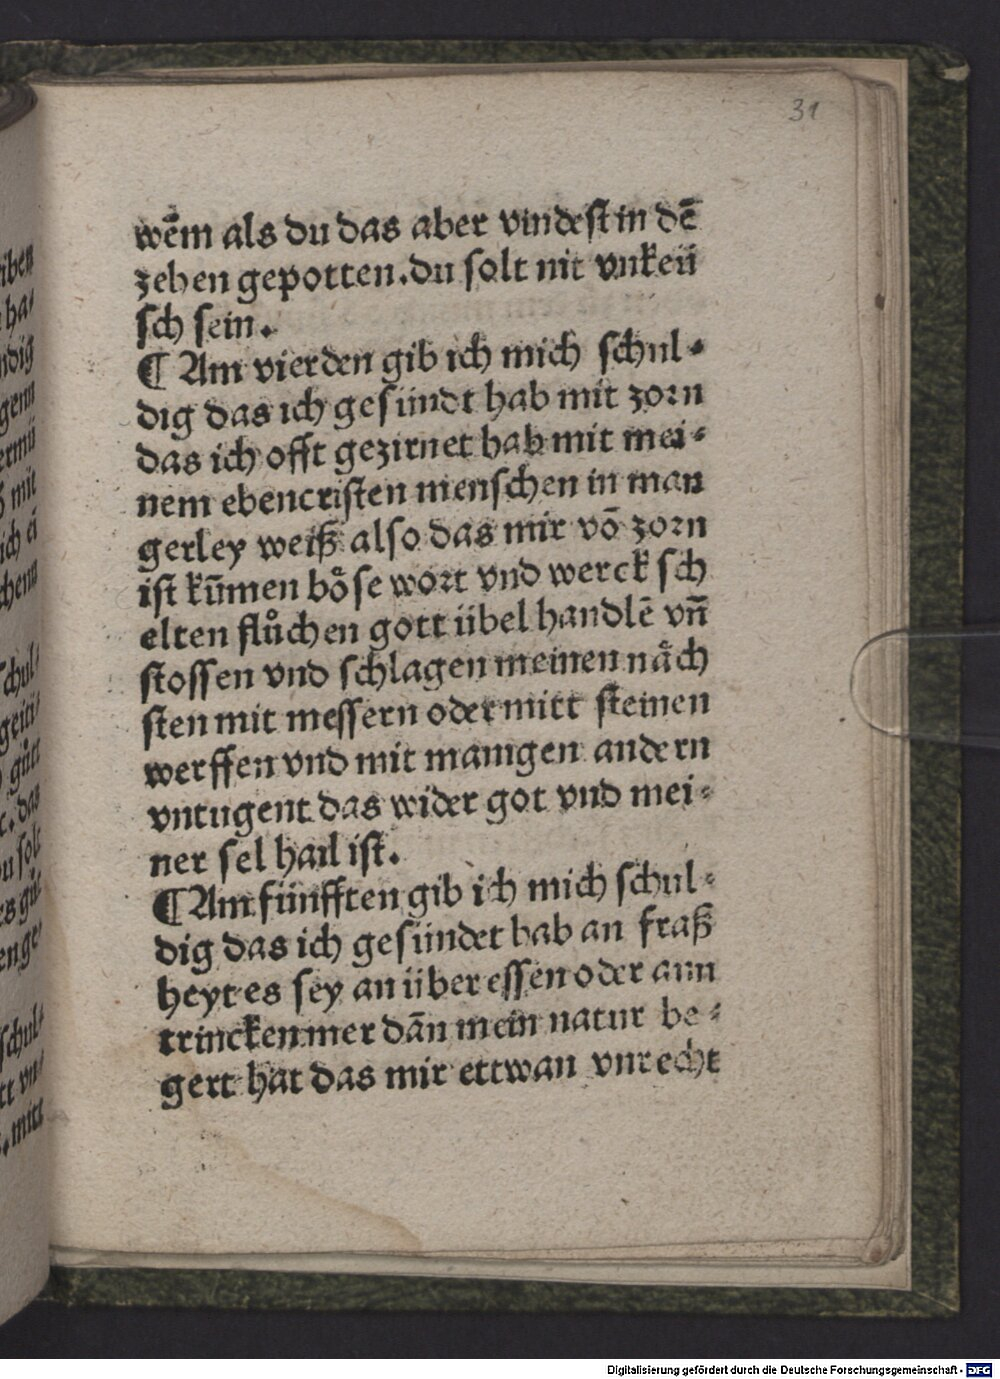 31
wēm als du das aber vindest in dē
zehen gepotten. du solt nit vnkeü
sch sein.
¶ Am vierden gib ich mich schul-
dig das ich gesündt hab mit zorn
das ich offt gezirnet hab mit mei-
nem ebencristen menschen in man
gerley weiß also das mir vō zorn
ist kūmen böse wort vnd werck sch
elten flůchen gott übel handlē vn̄
stossen vnd schlagen meinen nåch
sten mit messern oder mitt steinen
werffen vnd mit manigen andern
vntugent das wider got vnd mei-
ner sel hail ist.
¶ Am fünfften gib ich mich schul-
dig das ich gesündet hab an fraß
heyt es sey an über essen oder ann
trincken mer dān mein natur be-
gert hat das mir ettwan vnrecht
Digitalisierung gefördert durch die Deutsche Forschungsgemeinschaft - DFG